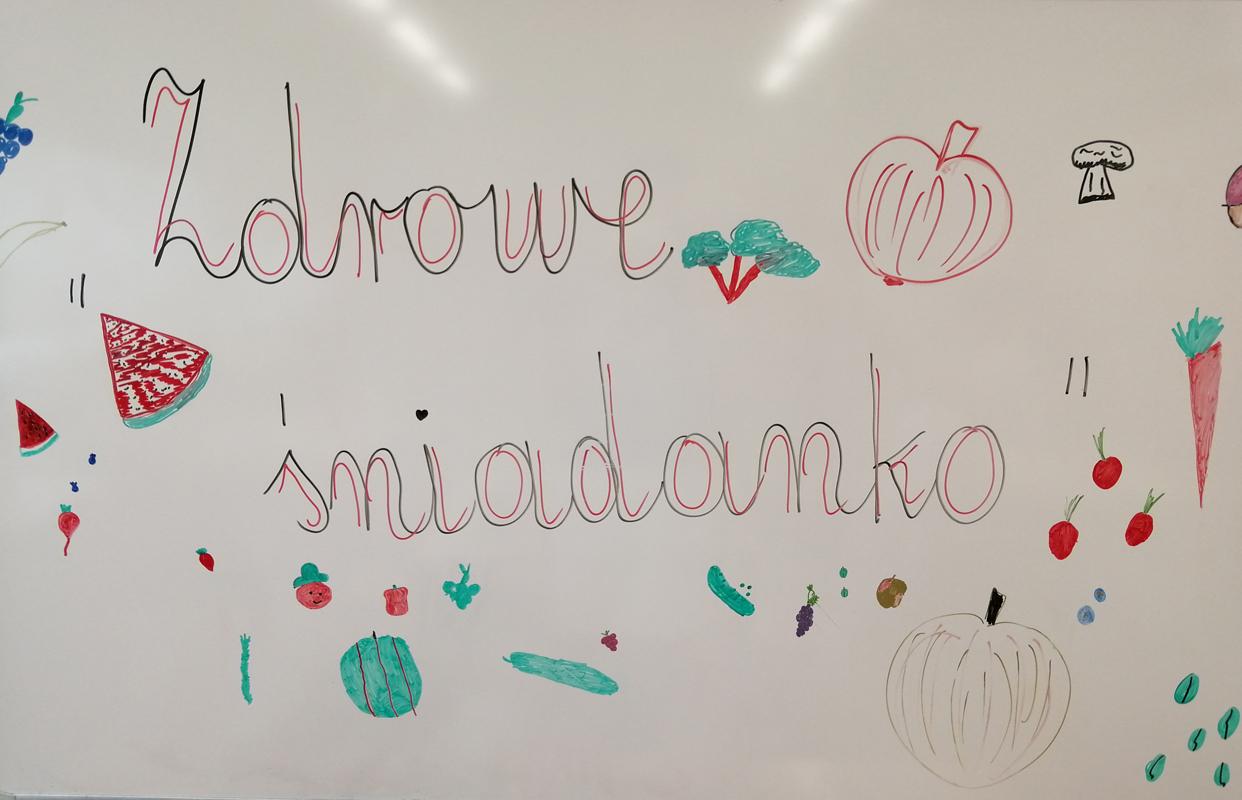 Zdrowe
" śniadanko "